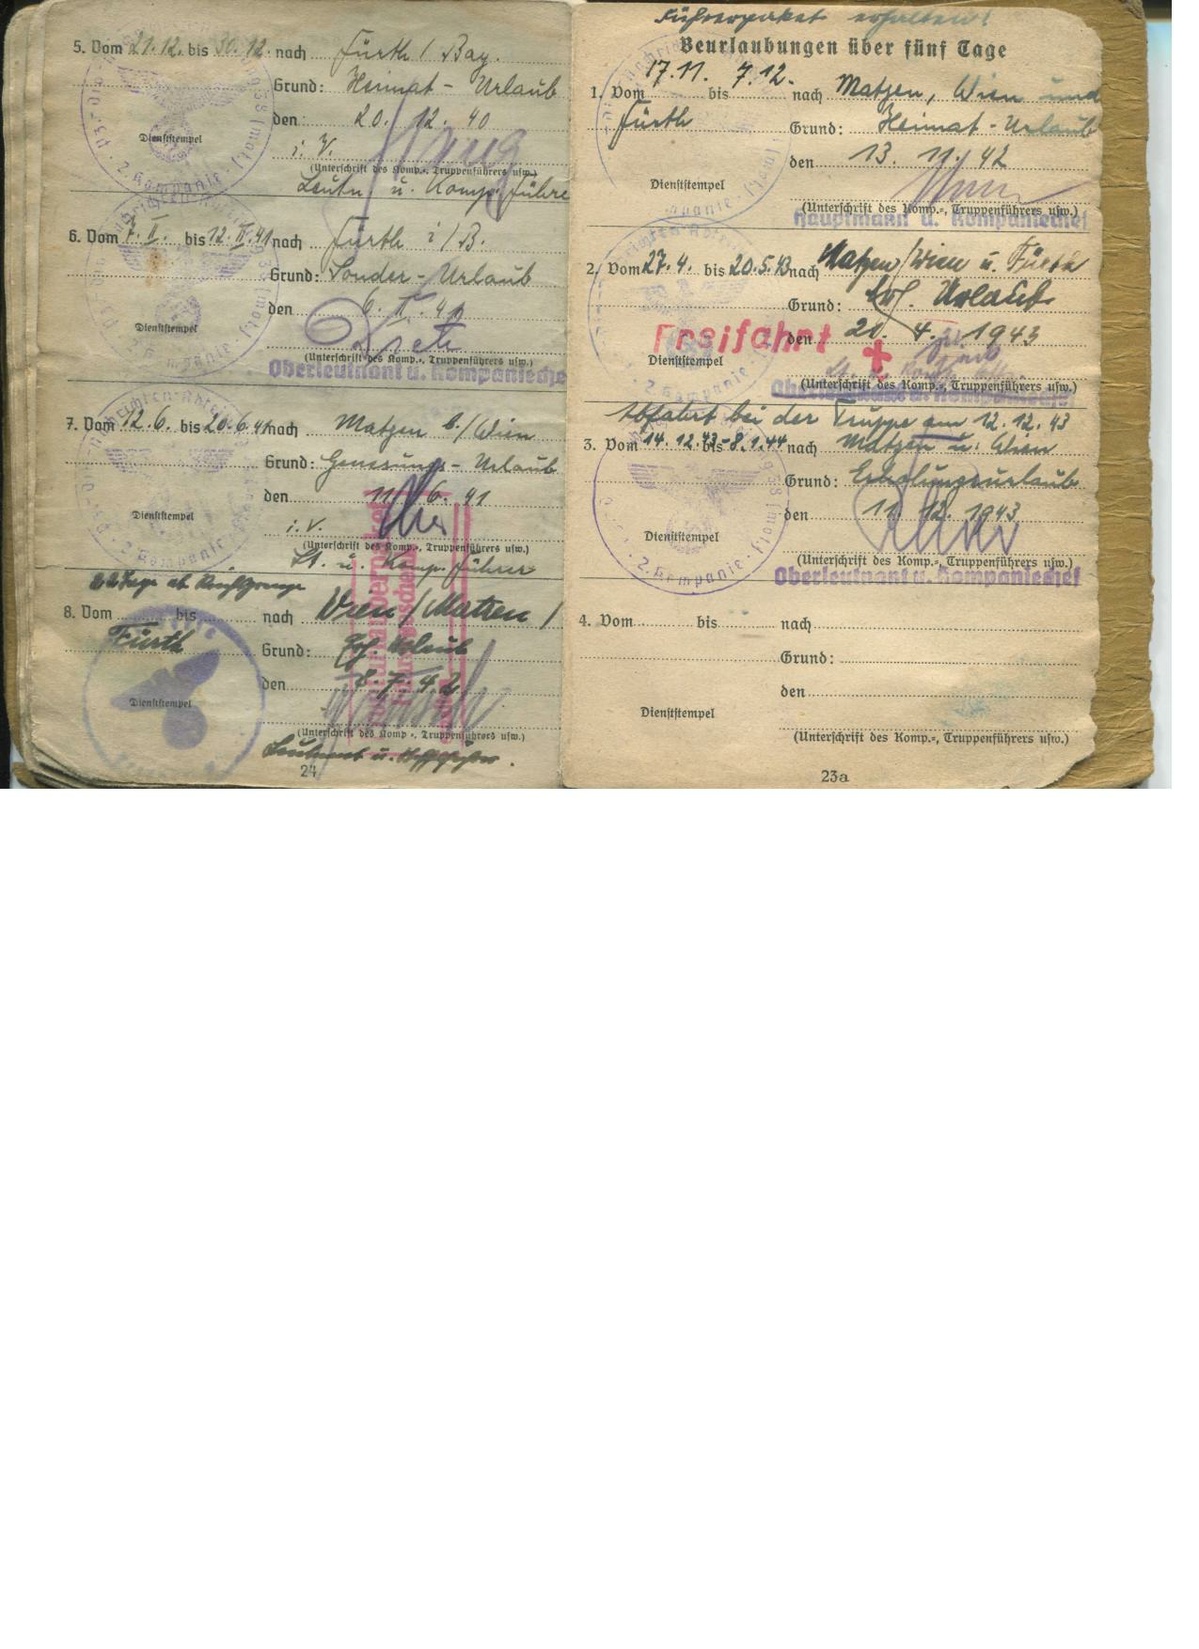 5. Vom 21.12. bis 30.12. nach Fürth / Bay.
Grund: Heimat - Urlaub
den 20. 12. 40
Dienststempel
i. V.
(Unterschrift des Komp.-, Truppenführers usw.)
Leutn. u. Komp. führer
6. Vom 7. II. bis 12. II. 41 nach Fürth i / B.
Grund: Sonder - Urlaub
den 6. II. 41
Dienststempel
(Unterschrift des Komp.-, Truppenführers usw.)
Oberleutnant u. Kompaniechef
7. Vom 12.6. bis 20.6.41 nach Matzen b. / Wien
Grund: Genesungs - Urlaub
den 11. 6. 41
Dienststempel
i. V.
(Unterschrift des Komp.-, Truppenführers usw.)
Lt. u. Komp. führer
Tage ab
8. Vom bis nach Wien / Matzen /
Fürth
Grund: Erh. Urlaub
den 8. 7. 42
Dienststempel
(Unterschrift des Komp.-, Truppenführers usw.)
Leutnant u.
24
2. Kompanie
Führerpaket erhalten!
Beurlaubungen über fünf Tage
1. Vom 17.11. bis 7.12. nach Matzen, Wien und
Fürth
Grund: Heimat - Urlaub
den 13. 11. 42
Dienststempel
(Unterschrift des Komp.-, Truppenführers usw.)
Hauptmann u. Kompaniechef
2. Vom 27.4. bis 20.5.43 nach Matzen / Wien u. Fürth
Grund: Erh. Urlaub
Freifahrt
den 20. 4. 1943
Dienststempel
(Unterschrift des Komp.-, Truppenführers usw.)
Oberleutnant u. Kompaniechef
Abfahrt bei der Truppe am 12. 12. 43
3. Vom 14.12.43 bis 8.1.44 nach Matzen u. Wien
Grund: Erholungsurlaub
den 11. 12. 1943
Dienststempel
(Unterschrift des Komp.-, Truppenführers usw.)
Oberleutnant u. Kompaniechef
2. Kompanie
4. Vom bis nach
Grund:
den
Dienststempel
(Unterschrift des Komp.-, Truppenführers usw.)
23a